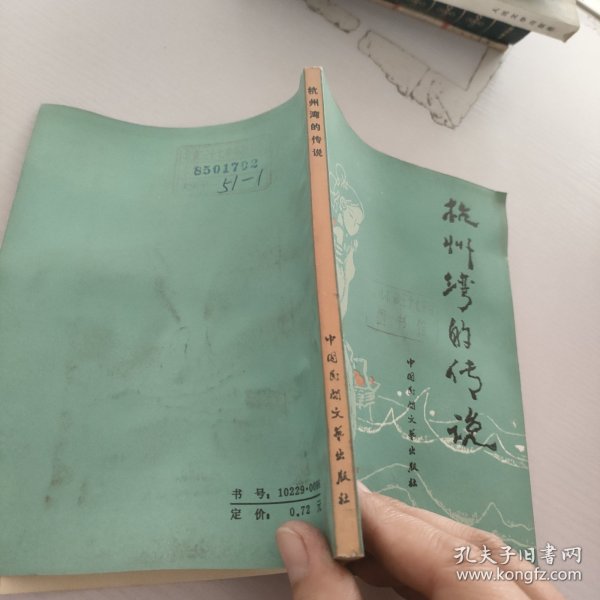 杭州湾的传说
中国民间文艺出版社
杭州湾的传说
中国民间文艺出版社
8501792
51-1
书号：10229·00
定价：0.72 元
孔夫子旧书网
www.kongfz.com